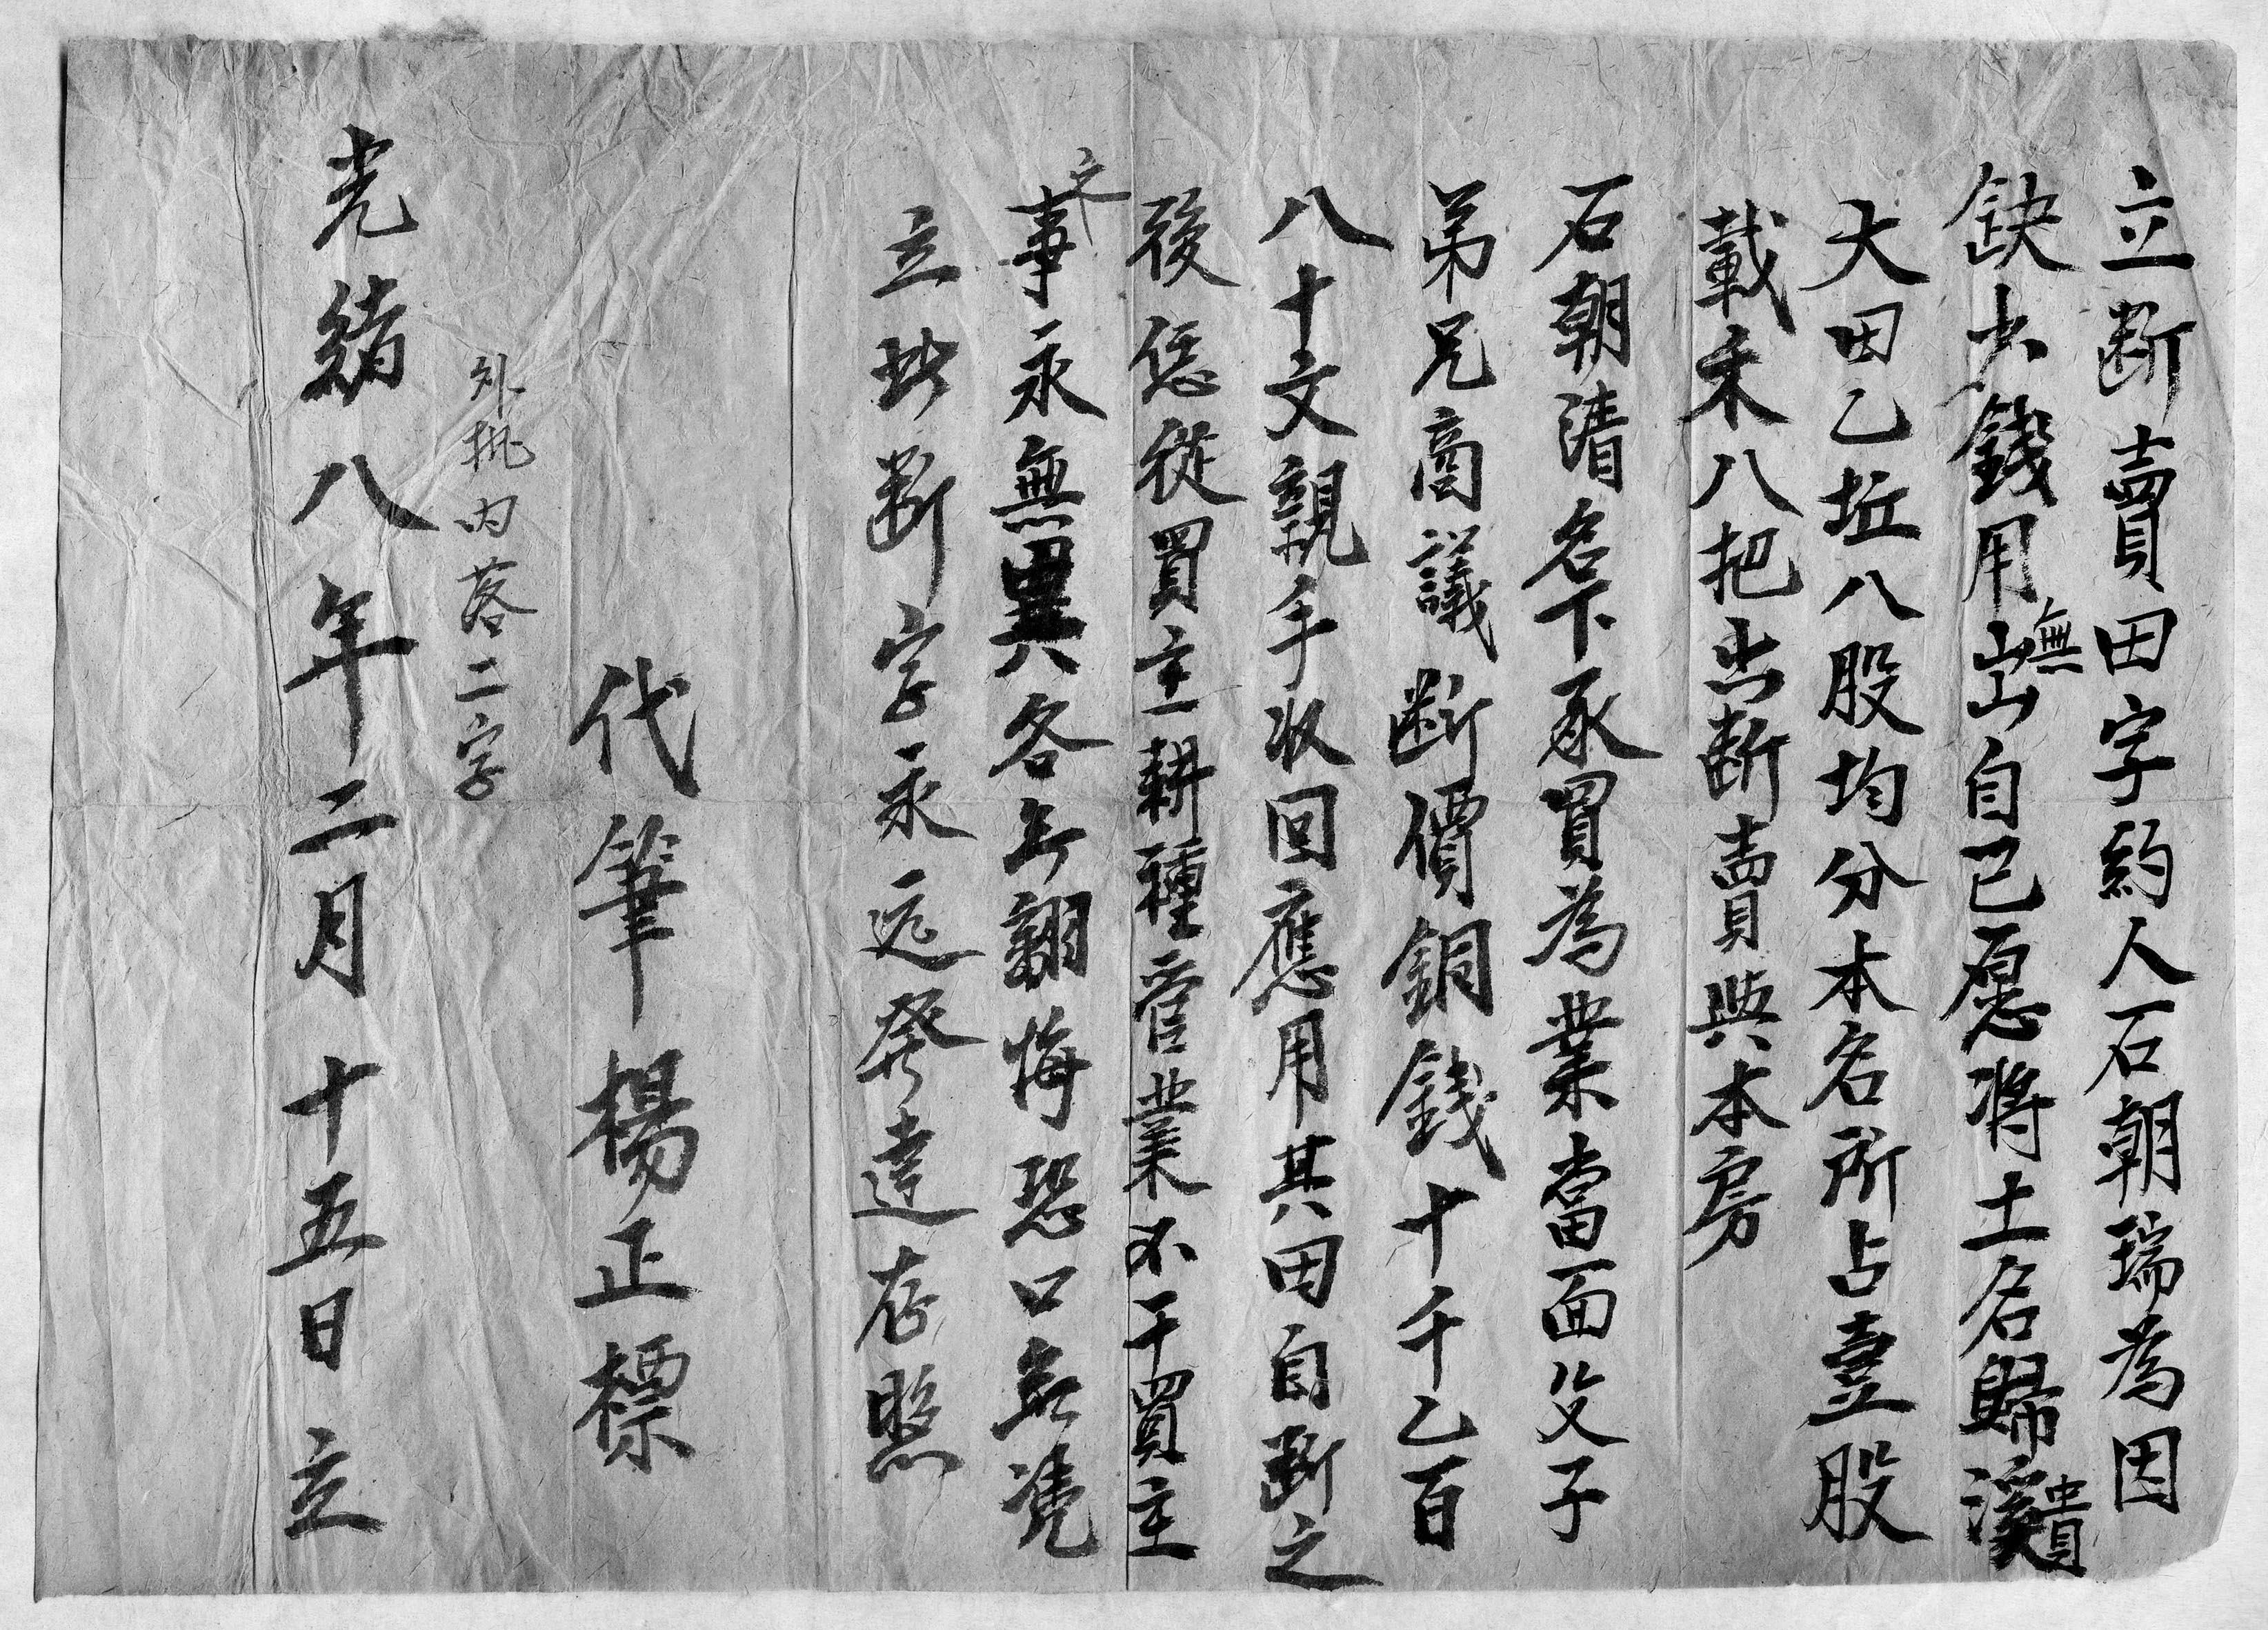 立断賣田字約人石朝瑞為因
缺少錢用無出自己愿将土名歸溪貴
大田乙坵八股均分本名所占壹股
載禾八把出断賣與本房
石朝清名下承買為業當面父子
弟兄商議断價銅錢十千乙百
八十文親手收回應用其田自断之
後恁從買主耕種管業不干買主
之事永無異各無翻悔恐口無凴
立此断字永远發達存照
代筆楊正標
外批内落二字
光緒八年二月十五日立